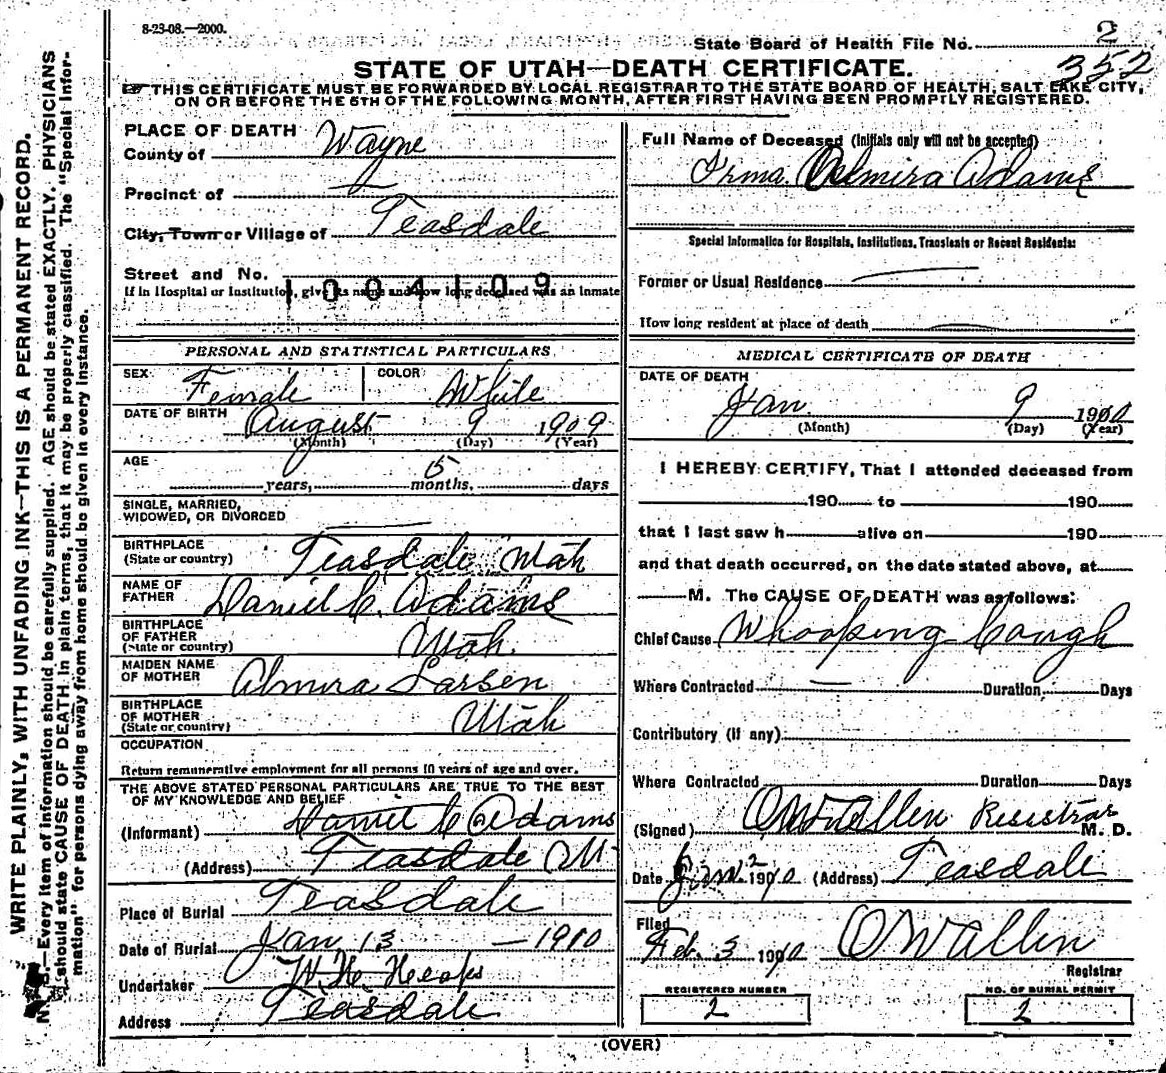 8-23-08.—2000.
State Board of Health File No. 2
352
STATE OF UTAH—DEATH CERTIFICATE.
THIS CERTIFICATE MUST BE FORWARDED BY LOCAL REGISTRAR TO THE STATE BOARD OF HEALTH, SALT LAKE CITY,
ON OR BEFORE THE 5TH OF THE FOLLOWING MONTH, AFTER FIRST HAVING BEEN PROMPTLY REGISTERED.
WRITE PLAINLY, WITH UNFADING INK—THIS IS A PERMANENT RECORD.
N. B.—Every item of information should be carefully supplied. AGE should be stated EXACTLY. PHYSICIANS
should state CAUSE OF DEATH in plain terms, that it may be properly classified. The "Special Infor-
mation" for persons dying away from home should be given in every instance.
PLACE OF DEATH
County of Wayne
Precinct of
City, Town or Village of Teasdale
Street and No.
1004109
If in Hospital or Institution, give its name and how long deceased was an inmate
PERSONAL AND STATISTICAL PARTICULARS
SEX Female COLOR White
DATE OF BIRTH August 9 1909
(Month) (Day) (Year)
AGE
years, 5 months, days
SINGLE, MARRIED,
WIDOWED, OR DIVORCED
BIRTHPLACE
(State or country) Teasdale Utah
NAME OF
FATHER Daniel C. Adams
BIRTHPLACE
OF FATHER
(State or country) Utah.
MAIDEN NAME
OF MOTHER Almira Larsen
BIRTHPLACE
OF MOTHER
(State or country) Utah
OCCUPATION
Return remunerative employment for all persons 10 years of age and over.
THE ABOVE STATED PERSONAL PARTICULARS ARE TRUE TO THE BEST
OF MY KNOWLEDGE AND BELIEF
(Informant) Daniel C Adams
(Address) Teasdale Ut
Place of Burial Teasdale
Date of Burial Jan 13 — 1910
Undertaker W. H. Heaps
Address Teasdale
Full Name of Deceased (Initials only will not be accepted)
Irma Almira Adams
Special Information for Hospitals, Institutions, Transients or Recent Residents:
Former or Usual Residence
How long resident at place of death
MEDICAL CERTIFICATE OF DEATH
DATE OF DEATH
Jan. 9 1910
(Month) (Day) (Year)
I HEREBY CERTIFY, That I attended deceased from
190 to 190
that I last saw h alive on 190
and that death occurred, on the date stated above, at
M. The CAUSE OF DEATH was as follows:
Chief Cause Whooping Cough
Where Contracted — Duration Days
Contributory (if any)
Where Contracted Duration Days
(Signed) O W Allen Registrar M. D.
Date 2 1910 (Address) Teasdale
Filed
Feb. 3 1910 O W Allen
Registrar
REGISTERED NUMBER
2
NO. OF BURIAL PERMIT
2
(OVER)